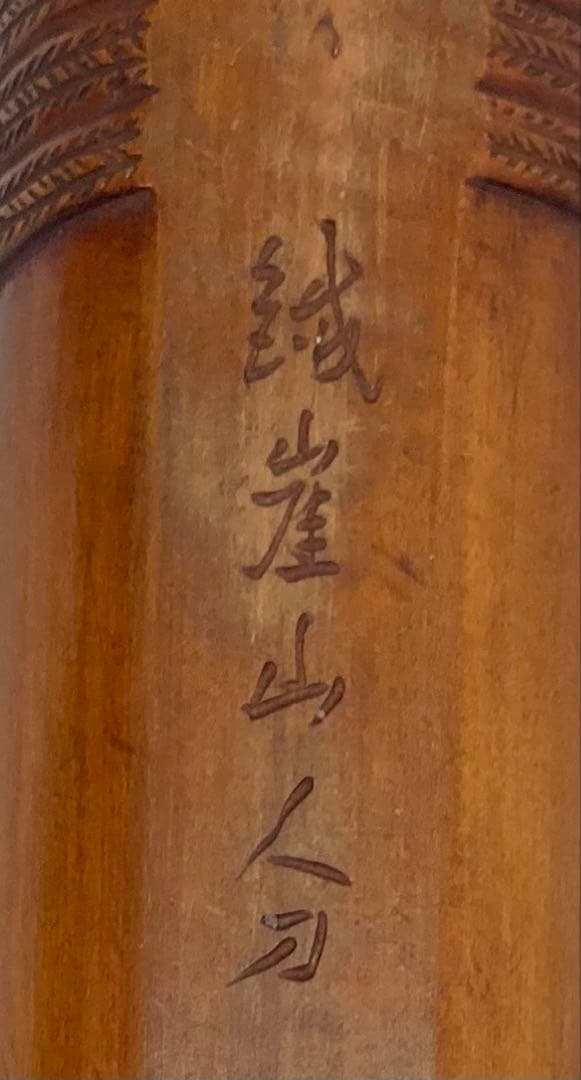 鐵崖山人刀